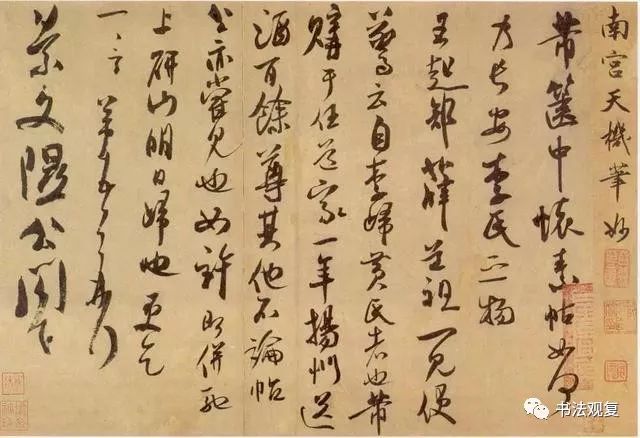 南宫天機筆妙
芾篋中懷素帖如何
乃長安李氏之物
王起部薛道祖一見便
驚云自李歸黃氏者也芾
購于任道家一年揚州送
酒百餘尊其他不論帖
公亦嘗見也如許即併馳
上研山明日歸也更乞
一言芾頓首再拜
景文隰公閤下
书法观复